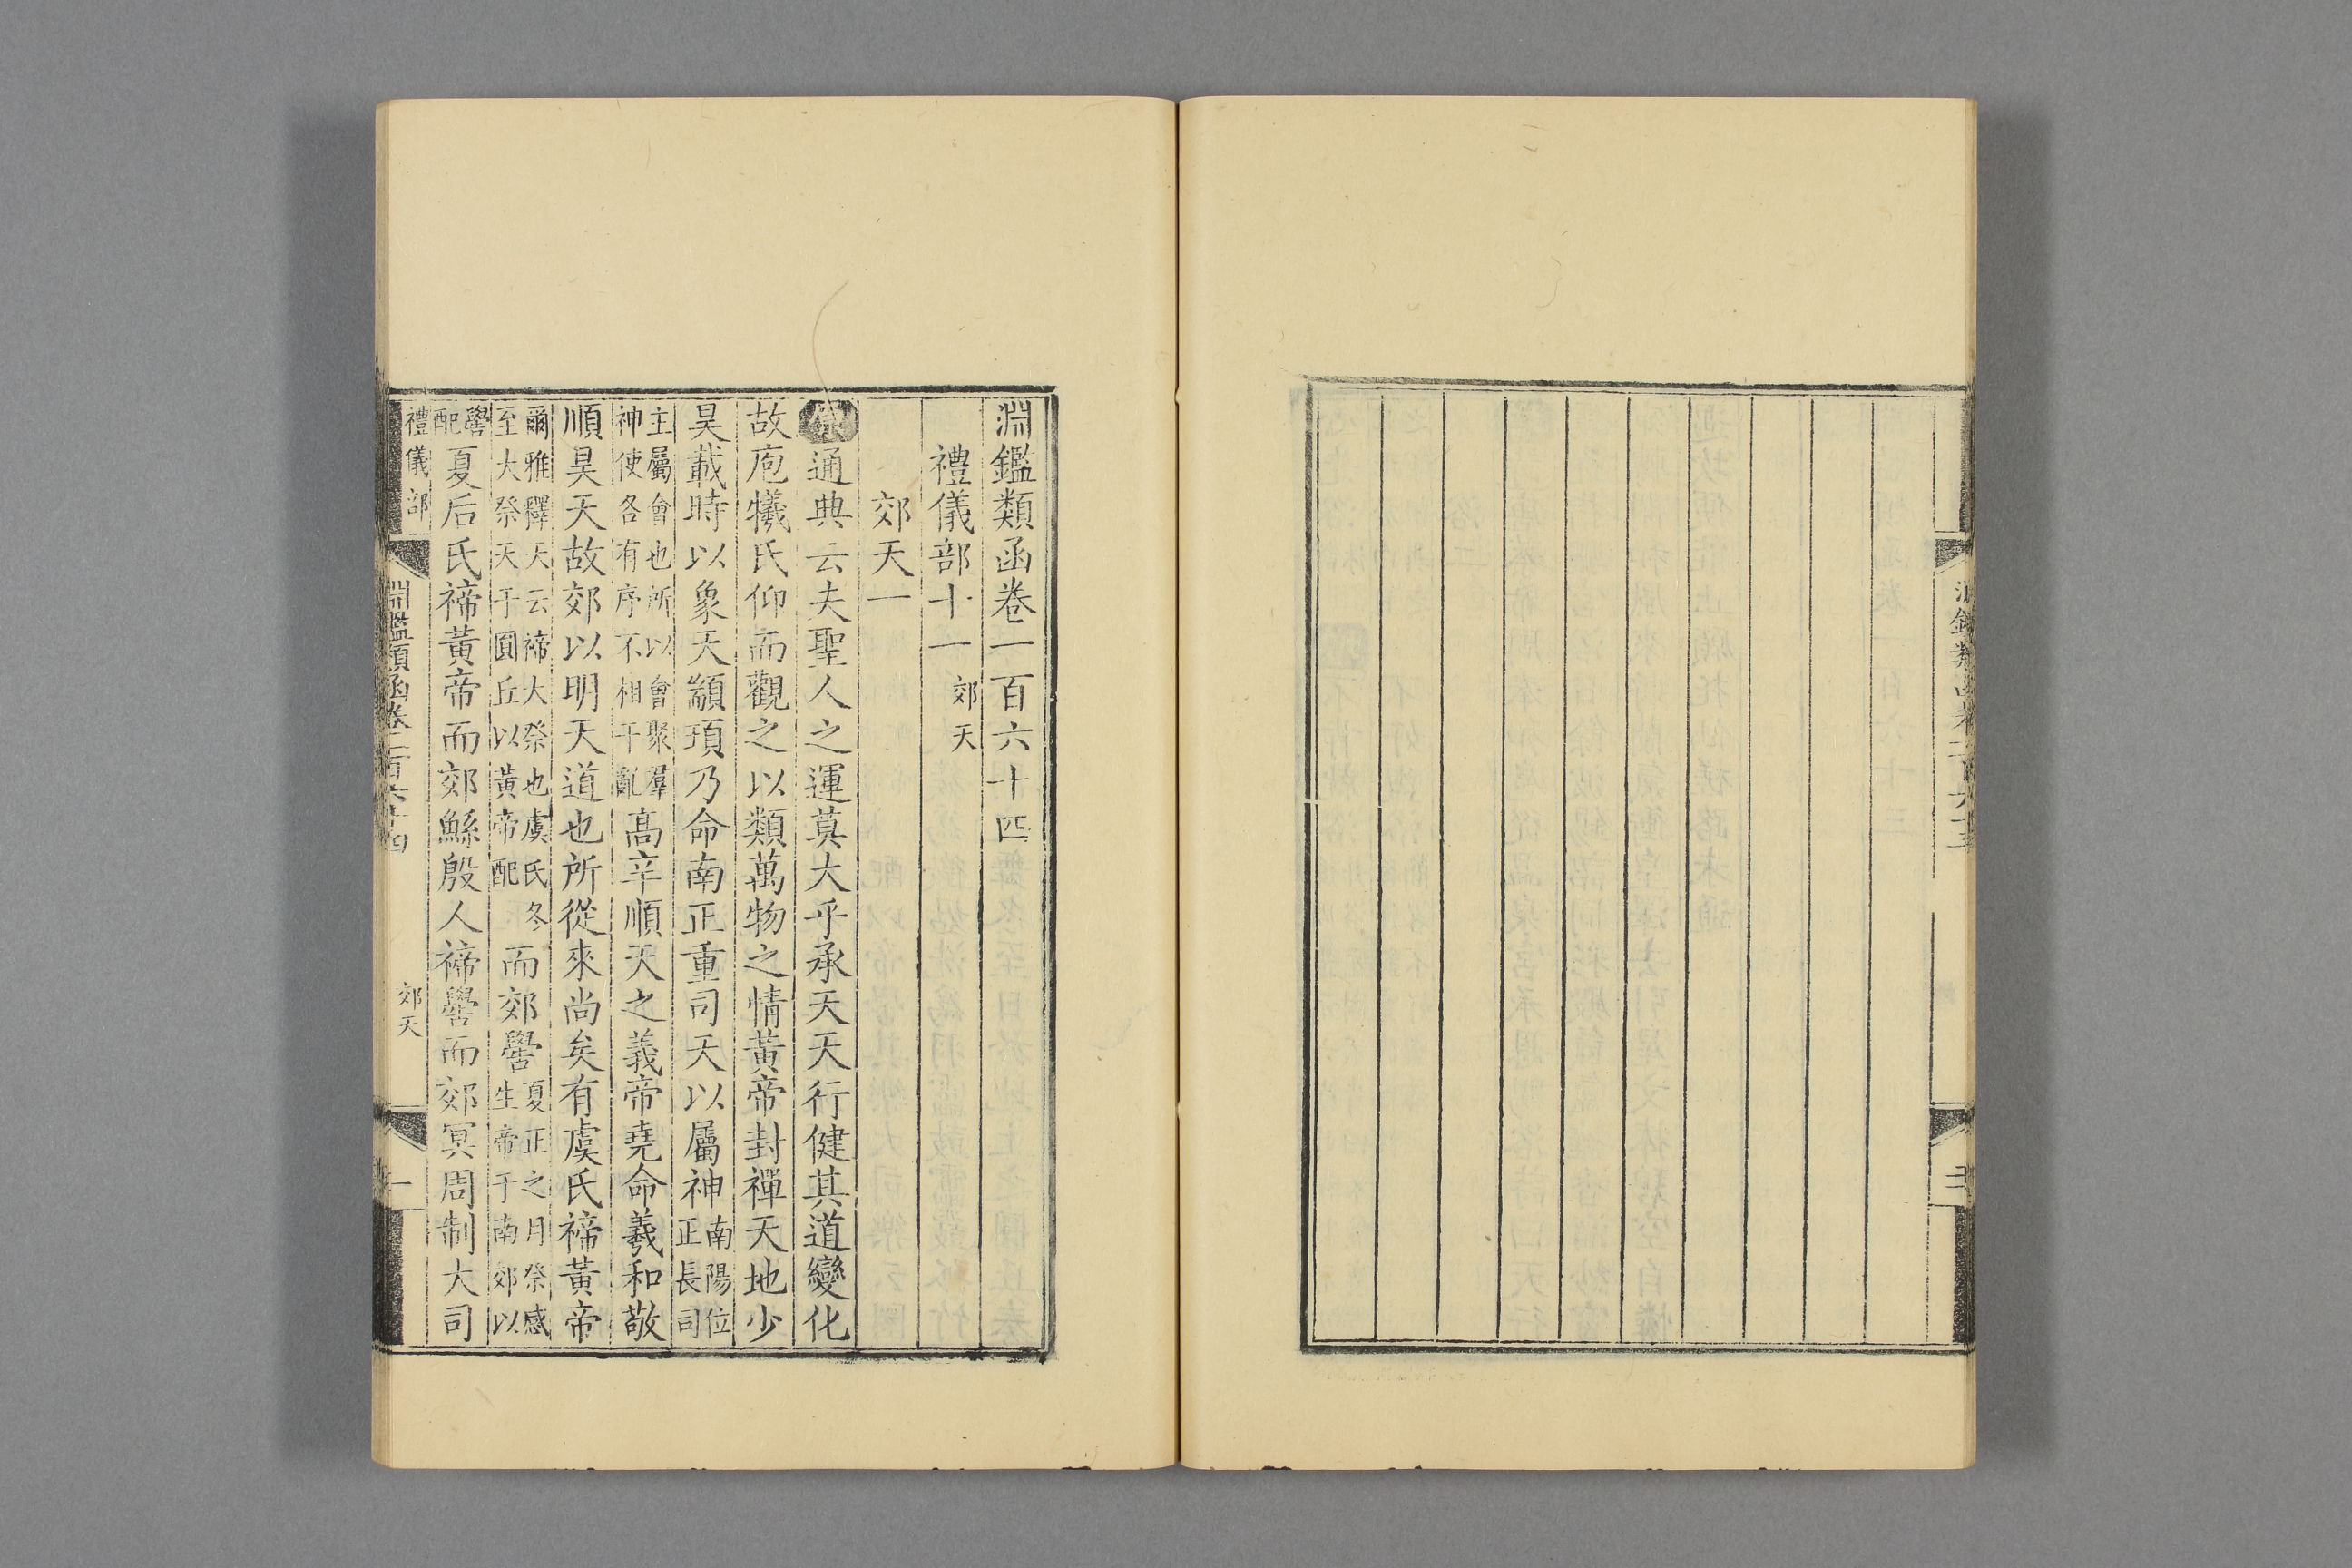 淵鑑類函卷一百六十四
禮儀部十一 郊天
郊天一
通典云夫聖人之運莫大乎承天天行健其道變化
故庖犧氏仰而觀之以類萬物之情黃帝封禪天地少
昊載時以象天顓頊乃命南正重司天以屬神南陽位正長司
主屬會也所以會聚羣神使各有序不相干亂高辛順天之義帝堯命羲和敬
順昊天故郊以明天道也所從來尚矣有虞氏禘黃帝
爾雅釋天云禘大祭也虞氏冬至大祭天于圓丘以黃帝配而郊嚳夏正之月祭感生帝于南郊以
嚳配夏后氏禘黃帝而郊鯀殷人禘嚳而郊冥周制大司
禮儀部 淵鑑類函卷一百六十四 郊天 一